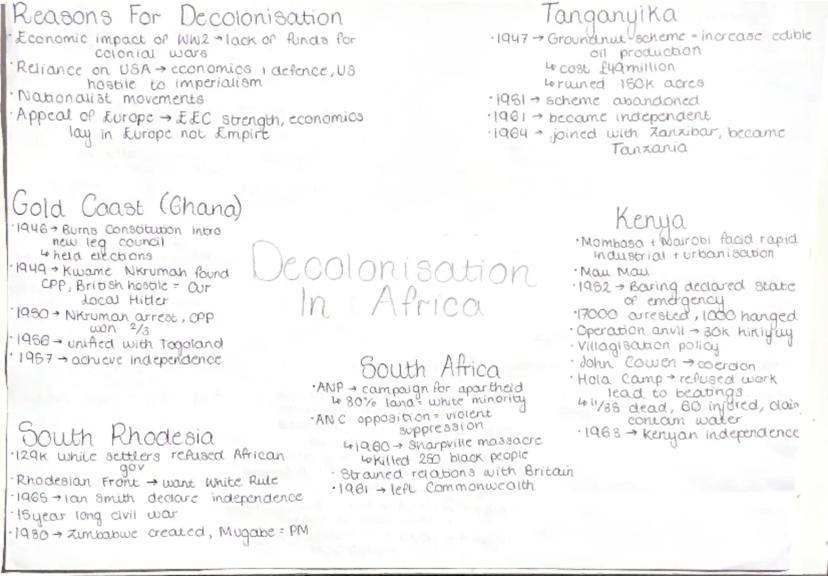 Reasons For Decolonisation
· Economic impact of WW2 → lack of funds for
colonial wars
· Reliance on USA → economics + defence, US
hostile to imperialism
· Nationalist movements
· Appeal of Europe → EEC strength, economics
lay in Europe not Empire
Tanganyika
· 1947 → Groundnut scheme = increase edible
oil production
↳ cost £49million
↳ ruined 150K acres
· 1951 → scheme abandoned
· 1961 → became independent
· 1964 → joined with Zanzibar, became
Tanzania
Gold Coast (Ghana)
· 1946 → Burns Constitution intro
new leg council
↳ held elections
· 1949 → Kwame Nkrumah found
CPP, British hostile = Our
Local Hitler
· 1950 → Nkrumah arrest, CPP
won 2/3
· 1956 → unified with Togoland
· 1957 → achieve independence
Decolonisation
In Africa
Kenya
· Mombasa + Nairobi facid rapid
industrial + urbanisation
· Mau Mau
· 1952 → Baring declared state
of emergency
· 17000 arrested, 1000 hanged
· Operation anvil → 30K kikiyuy
· Villagisation policy
· John Cowen → coercion
· Hola Camp → refused work
lead to beatings
↳ 11/85 dead, 60 injured, claim
contam water
· 1963 → Kenyan independence
South Africa
· ANP → campaign for apartheid
↳ 80% land = white minority
· ANC opposition = violent
suppression
↳ 1960 → Sharpville massacre
↳ killed 250 black people
· Strained relations with Britain
· 1961 → left Commonwealth
South Rhodesia
· 129K white settlers refused African
gov
· Rhodesian Front → want White Rule
· 1965 → Ian Smith declare independence
· 15 year long civil war
· 1980 → Zimbabwe created, Mugabe = PM